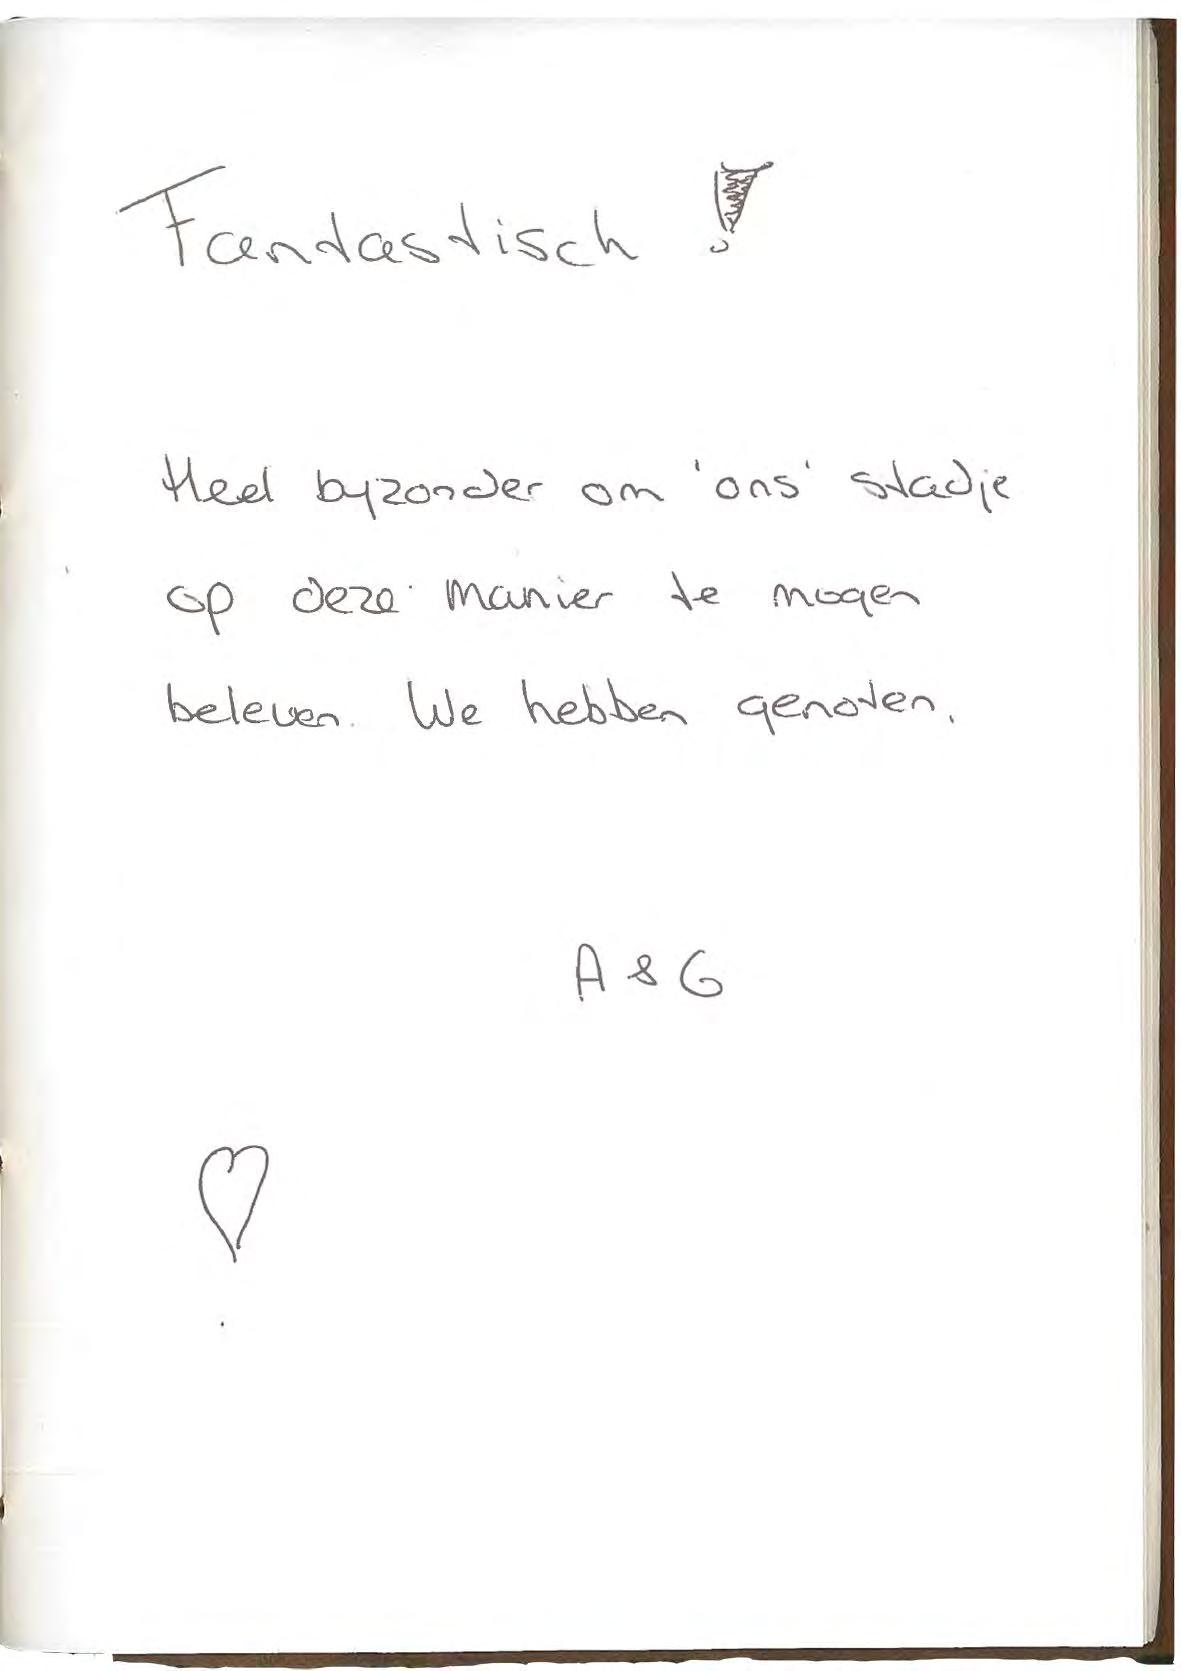 Fantastisch !
Heel byzonder om 'ons' stadje
op deze manier te mogen
beleven. We hebben genoten.
A & G